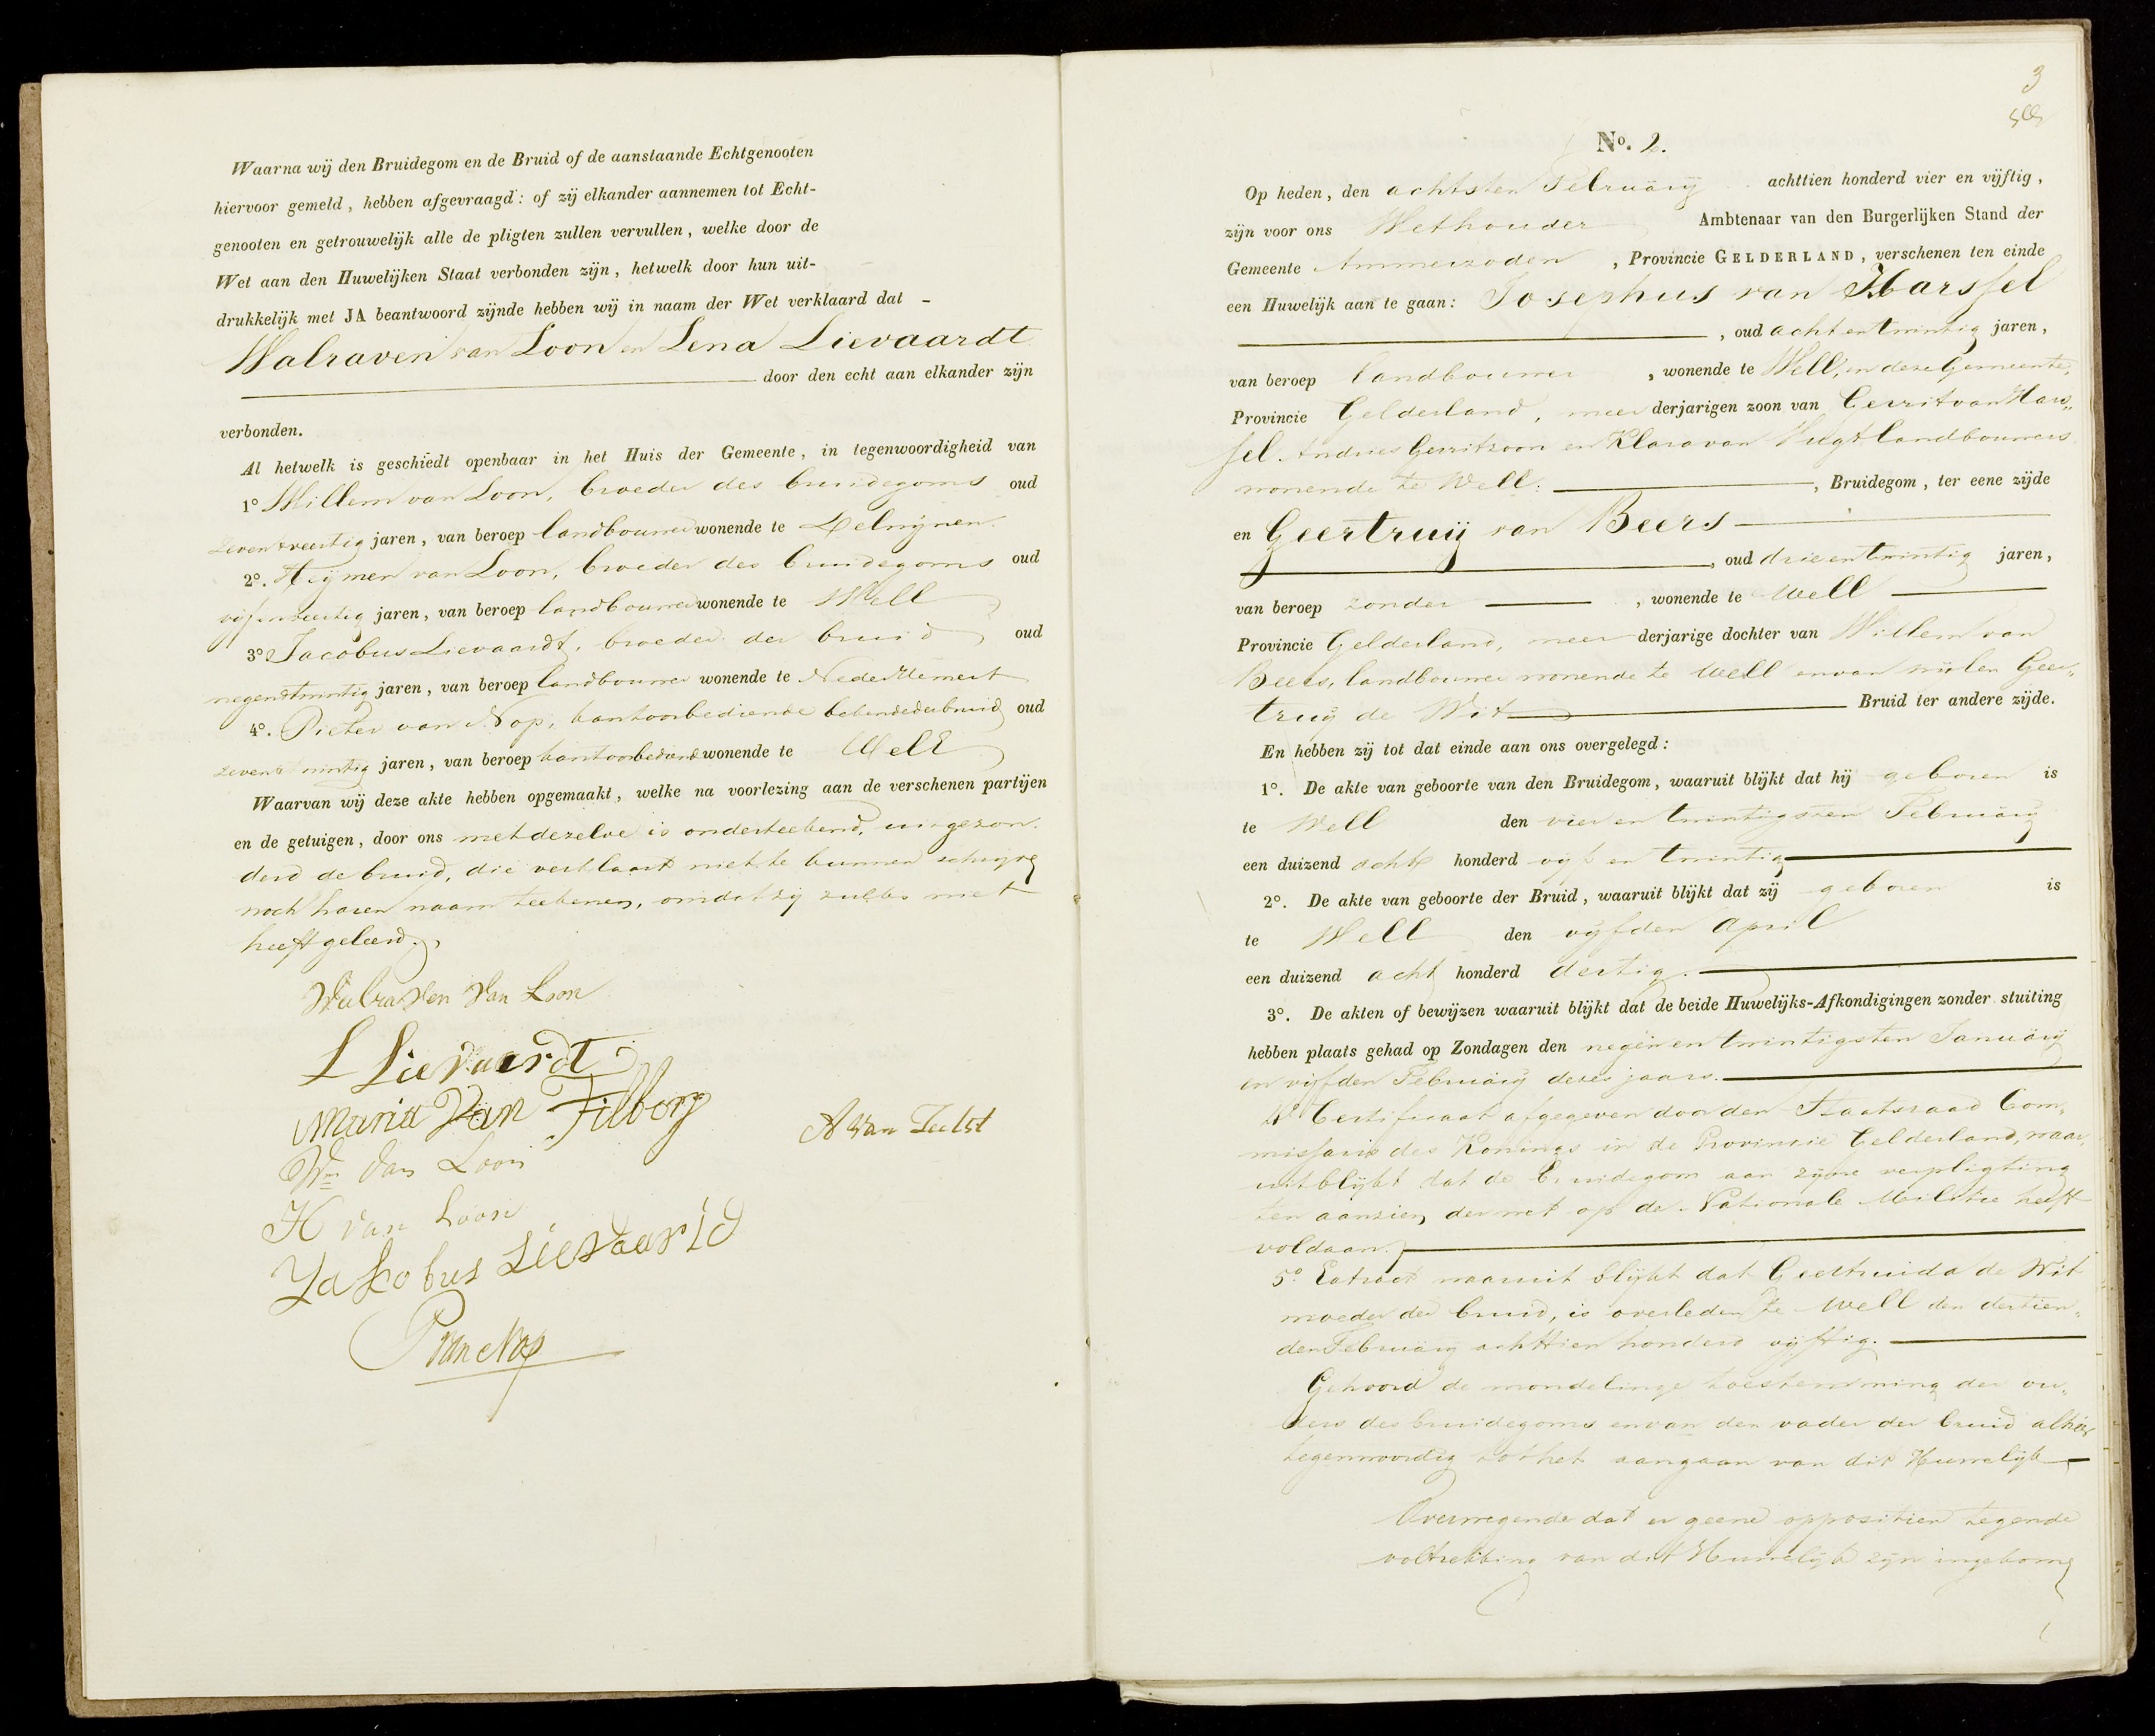 Waarna wij den Bruidegom en de Bruid of de aanstaande Echtgenooten
hiervoor gemeld, hebben afgevraagd: of zij elkander aannemen tot Echt-
genooten en getrouwelijk alle de pligten zullen vervullen, welke door de
Wet aan den Huwelijken Staat verbonden zijn, hetwelk door hun uit-
drukkelijk met JA beantwoord zijnde hebben wij in naam der Wet verklaard dat -
Walraven van Loon en Lena Lievaardt
door den echt aan elkander zijn
verbonden.
Al hetwelk is geschiedt openbaar in het Huis der Gemeente, in tegenwoordigheid van
1º Willem van Loon, broeder des bruidegoms oud
zevenveertig jaren, van beroep landbouwer wonende te Delwijnen
2º. Heijmen van Loon, broeder des bruidegoms oud
vijfenveertig jaren, van beroep landbouwer wonende te Well
3º Jacobus Lievaardt, broeder der bruid oud
negenentwintig jaren, van beroep landbouwer wonende te Nederhemert
4º. Pieter van Nop, kantoorbediende bekende der bruid oud
zevenentwintig jaren, van beroep kantoorbediende wonende te Well
Waarvan wij deze akte hebben opgemaakt, welke na voorlezing aan de verschenen partijen
en de getuigen, door ons met dezelve is onderteekend, uitgezon-
derd de bruid, die verklaart niet te kunnen schrijven
noch haren naam teekenen, omdat zij zulks niet
heeft geleerd.
Walraven Van Loon
L Lievaardt
Maria Van Tilborg
A van Teelst
Wm Van Loon
H van Loon
Jakobus Lievaard
P van Nop
3
Nº. 2.
Op heden, den achtsten Februarij achttien honderd vier en vijftig,
zijn voor ons Wethouder Ambtenaar van den Burgerlijken Stand der
Gemeente Ammerzoden, Provincie GELDERLAND, verschenen ten einde
een Huwelijk aan te gaan: Josephus van Harssel
, oud achtentwintig jaren,
van beroep landbouwer, wonende te Well, in deze Gemeente,
Provincie Gelderland, meerderjarigen zoon van Gerrit van Hars„
sel Andries Gerritzoon en Klara van Vugt landbouwers
wonende te Well: , Bruidegom, ter eene zijde
en Geertruij van Beers
, oud drieentwintig jaren,
van beroep zonder , wonende te Well
Provincie Gelderland, meerderjarige dochter van Willem van
Beers, landbouwer wonende te Well en van wijlen Geer„
truij de Wit Bruid ter andere zijde.
En hebben zij tot dat einde aan ons overgelegd:
1º. De akte van geboorte van den Bruidegom, waaruit blijkt dat hij geboren is
te Well den vier en twintigsten Februarij
een duizend acht honderd vijf en twintig
2º. De akte van geboorte der Bruid, waaruit blijkt dat zij geboren is
te Well den vijfden April
een duizend acht honderd dertig.
3º. De akten of bewijzen waaruit blijkt dat de beide Huwelijks-Afkondigingen zonder stuiting
hebben plaats gehad op Zondagen den negen en twintigsten Januarij
en vijfden Februarij dezes jaars.
4º Certificaat afgegeven door den Staatsraad Com„
missaris des Konings in de Provincie Gelderland, waar„
uit blijkt dat de Bruidegom aan zijne verpligting
ten aanzien der wet op de Nationale Militie heeft
voldaan.
5º Extract waaruit blijkt dat Geertruida de Wit
moeder der bruid, is overleden te Well den dertien„
den Februarij achttien honderd vijftig.
Gehoord de mondelinge toestemming der ou„
ders des bruidegoms en van den vader der bruid alhier
tegenwoordig tot het aangaan van dit Huwelijk
Overwegende dat er geene oppositien tegen de
voltrekking van dit Huwelijk zijn ingekomen